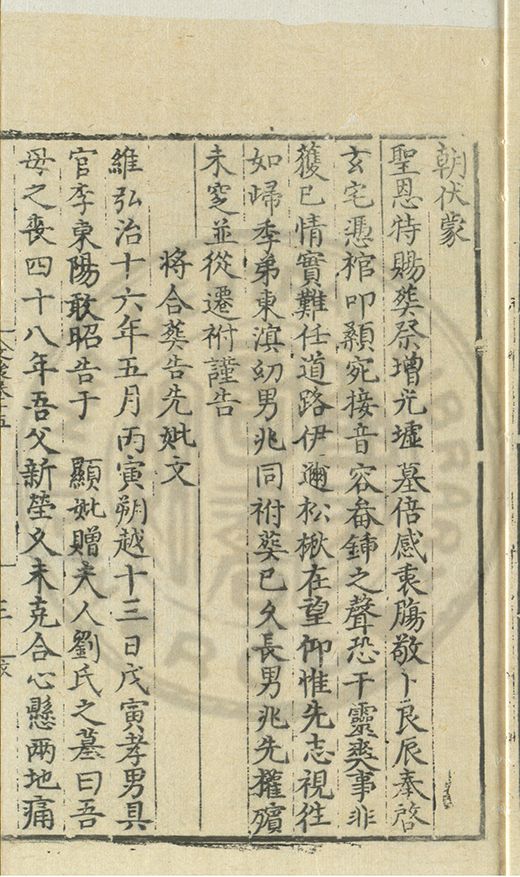 朝伏蒙
聖恩特賜葬祭增光墟墓倍感衷膓敬卜良辰奉啓
玄宅憑棺叩顙宛接音容畚鍤之聲恐干靈爽事非
獲已情實難任道路伊邇松楸在望仰惟先志視往
如歸季弟東滇幼男兆同祔葬已久長男兆先權殯
未窆並從遷祔謹告
將合葬告先妣文
維弘治十六年五月丙寅朔越十三日戊寅孝男具
官李東陽敢昭告于 顯妣贈夫人劉氏之墓曰吾
母之喪四十八年吾父新塋久未克合心懸兩地痛